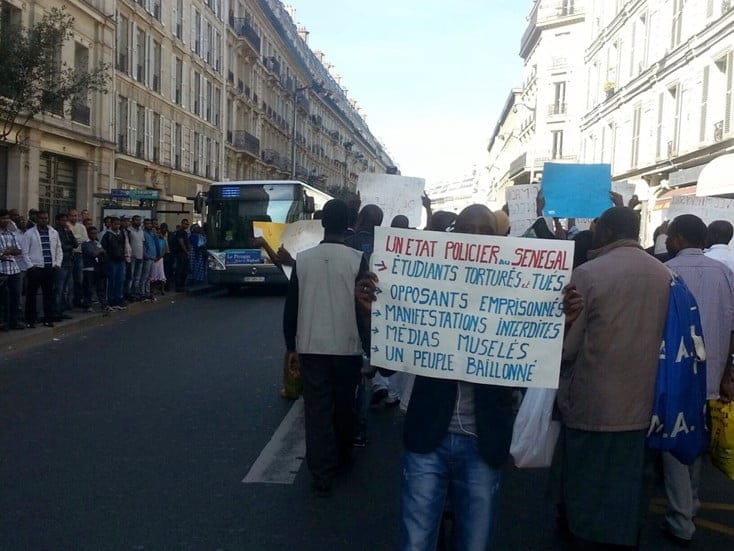 UN ETAT POLICIER au SENEGAL
→ ÉTUDIANTS TORTURÉS et TUÉS
→ OPPOSANTS EMPRISONNÉS
→ MANIFESTATIONS INTERDITES
→ MÉDIAS MUSELÉS
→ UN PEUPLE BAILLONNÉ